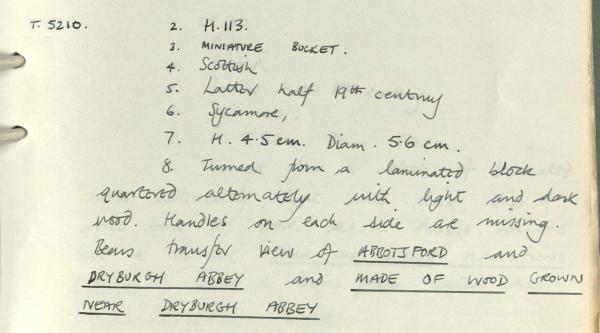 T. 5210. 2. H.113.
3. MINIATURE BUCKET.
4. Scottish
5. Latter half 19th century
6. Sycamore,
7. H. 4.5cm. Diam. 5.6 cm.
8. Turned from a laminated block
quartered alternately with light and dark
wood. Handles on each side are missing.
Bears transfer view of ABBOTSFORD and
DRYBURGH ABBEY and MADE OF WOOD GROWN
NEAR DRYBURGH ABBEY